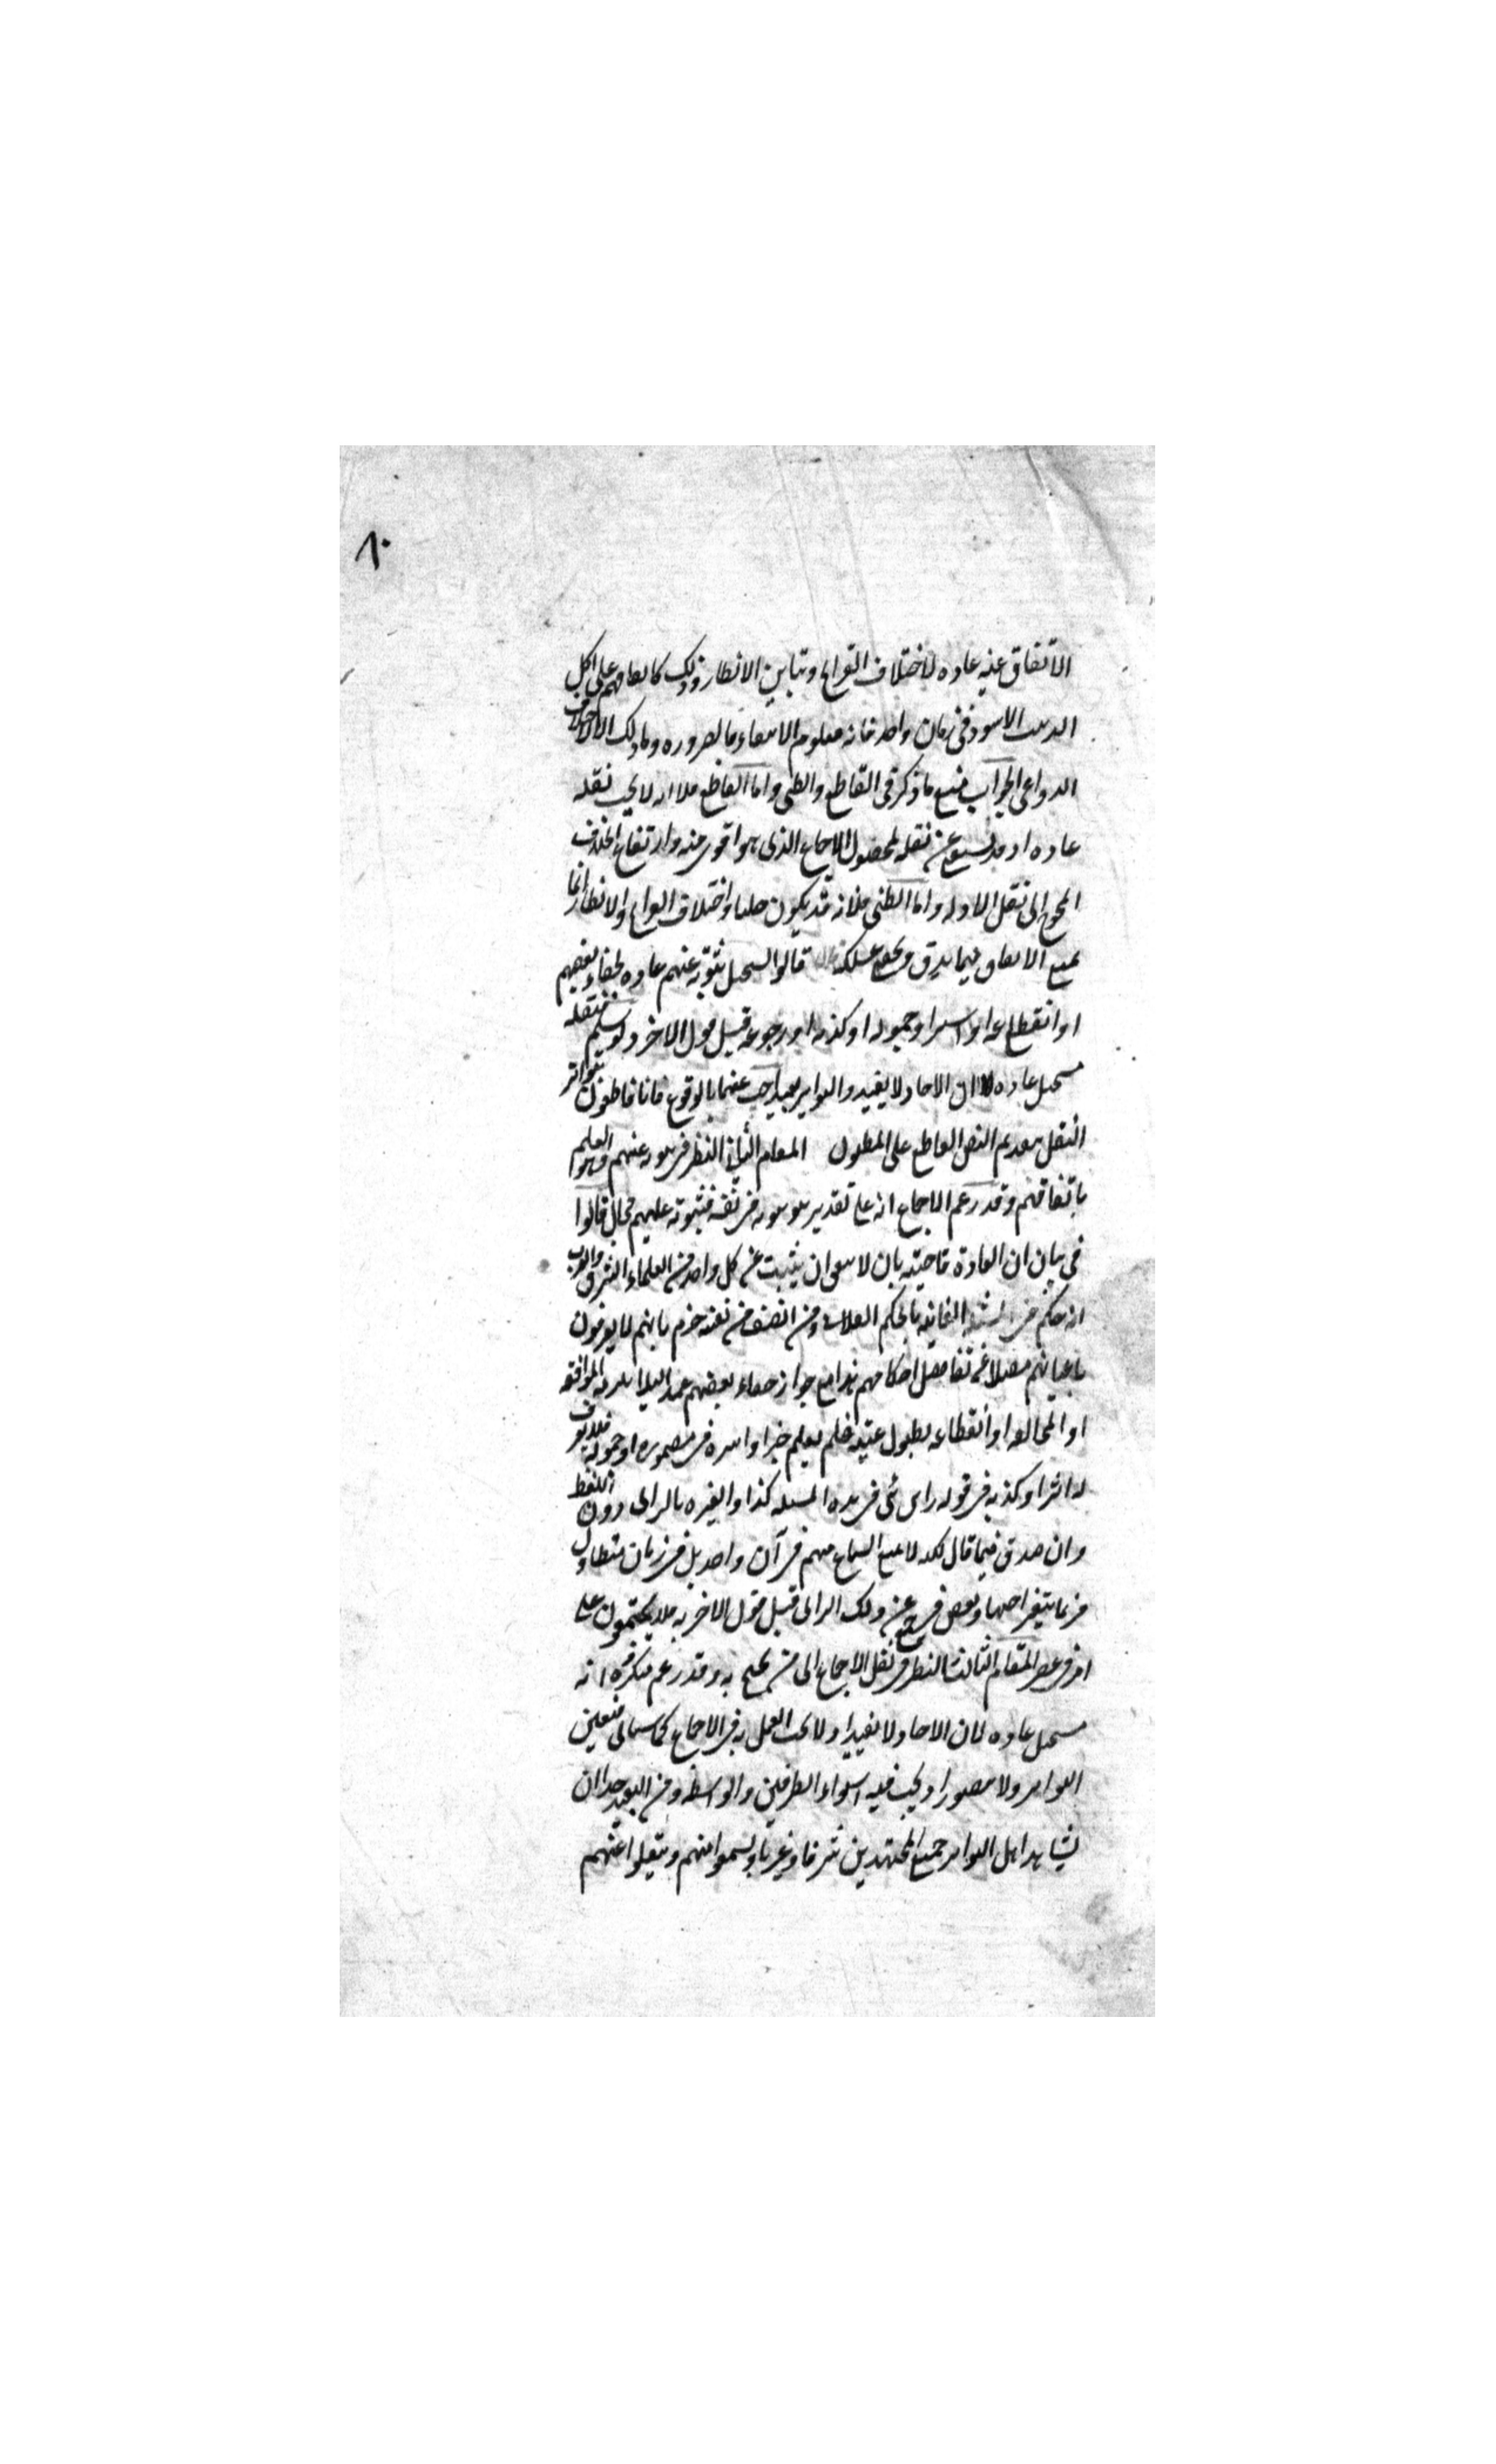 ٨٠
الاتفاق عنه عاده لاختلاف القرائح وتباين الانظار وذلك كاتفاقهم على اكل
الاسود فى زمان واحد فانه معلوم الانتفاء بالضروره وما ذلك الا لاختلاف
الدواعى الجواب منع ما ذكر فى القاطع والظنى واما القاطع فلانه لا يجب نقله
عاده اذ قد يستغنى عن نقله لحصول الاجماع الذى هو اقوى منه وارتفاع الخلاف
المحوج الى نقل الادله واما الظنى فلانه قد يكون جليا واختلاف القرائح والانظار انما
يمنع الاتفاق فيما يدق ويخفى مسلكه قالوا يستحيل ثبوته عنهم عاده لخفاء بعضهم
او انقطاعه او اسره او خموله او كذبه او رجوعه قبل قول الاخر ولو سلم فنقله
مستحيل عاده لان الاحاد لا يفيد والتواتر بعيد اجيب عنهما بالوقوع فانا قاطعون بتواتر
النقل بتقديم النص القاطع على المظنون المقام الثانى النظر فى ثبوته عنهم وهو العلم
باتفاقهم وقد زعم الاجماع انه على تقدير ثبوته فى نفسه فثبوته عليهم محال قالوا
فى بيان ان العادة قاضية بان لا يتفق ان يثبت عن كل واحد من العلماء الشرق والغرب
انه حكم فى المسئلة الفلانيه بالحكم الفلانى ومن انصف من نفسه جزم بانهم لا يعرفون
باعيانهم فضلا عن تفاصيل احكامهم هذا مع جواز خفاء بعضهم عمدا لئلا يلزمه الموافقه
او المخالفه او انقطاعه لطول غيبته فلم يعلم خبرا واسره فى مطموره او خموله فلا يعرف
له اثر او كذبه فى قوله راى فى هذه المسله كذا والعبره بالراى دون اللفظ
وان صدق فيما قال لكنه لا يمكن السماع منهم فى آن واحد بل فى زمان متطاول
فربما يتغير اجتهاد بعض فيرجع عن ذلك الراى قبل قول الاخر به فلا يجتمعون على
امر فى عصر المقام الثالث النظر فى نقل الاجماع الى من يحتج به وقد زعم منكره انه
مستحيل عاده لان الاحاد لا يفيد اذ لا يجب العمل به فى الاجماع كما سياتى فتعين
التواتر ولا يتصور اذ يجب فيه استواء الطرفين والواسطه ومن البعيد جدا ان
يشاهد اهل التواتر جميع المجتهدين شرقا وغربا ويسمعوا منهم وينقلوا عنهم